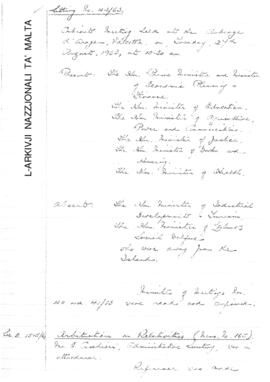 L-ARKIVJI NAZZJONALI TA' MALTA
Sitting No. 42/63.
Cabinet Meeting held at the Auberge
d'Aragon, Valletta, on Tuesday 27th
August, 1963, at 10.20 am
Present: The Hon. Prime Minister and Minister
of Economic Planning &
Finance
The Hon. Minister of Education.
The Hon. Minister of Agriculture,
Power and Communications.
The Hon. Minister of Justice.
The Hon. Minister of Works and
Housing.
The Hon. Minister of Health.
Absent: The Hon. Minister of Industrial
Development & Tourism
The Hon. Minister of Labour &
Social Welfare
who were away from the
Islands.
Minutes of Meetings Nos.
40 and 41/63 were read and approved.
Arbitration on Relativities (Memo. No. 165).
Administrative Secretary, was in
attendance.
Reference was made